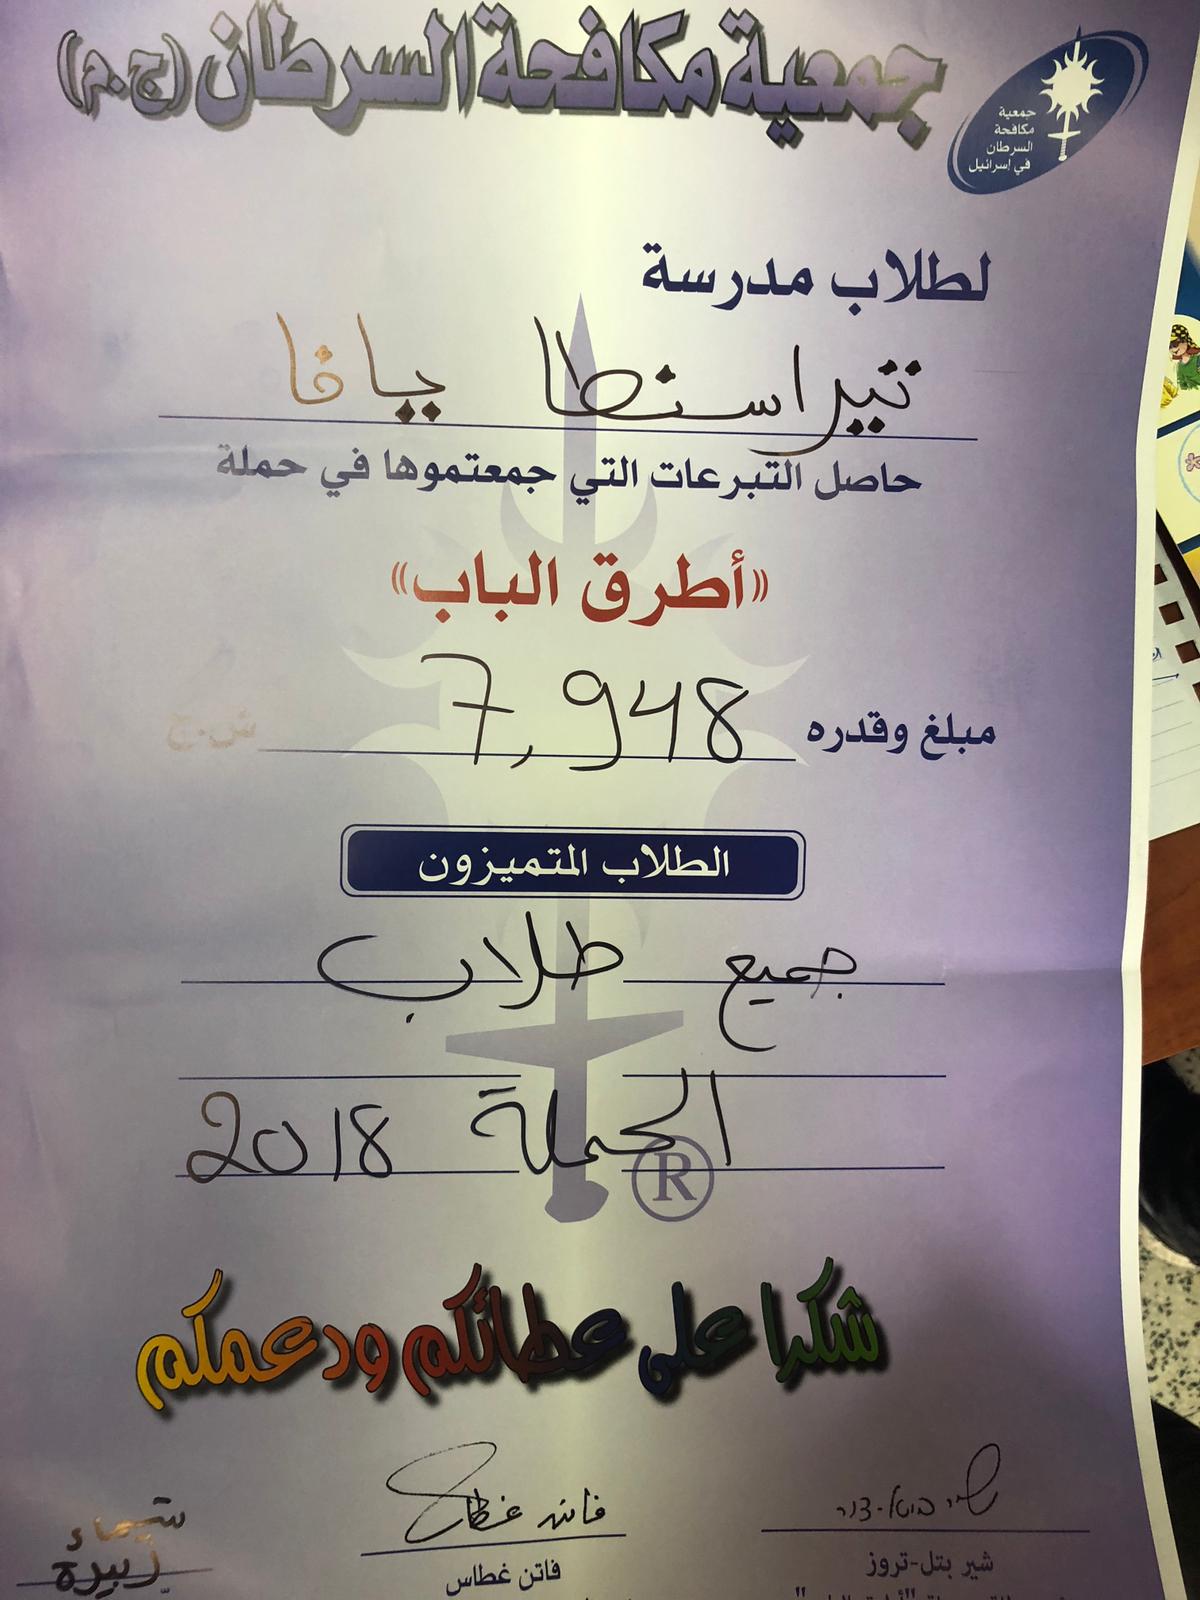 جمعية مكافحة السرطان (ج.م)
جمعية
مكافحة
السرطان
في إسرائيل
لطلاب مدرسة
تيراسنطا يافا
حاصل التبرعات التي جمعتموها في حملة
«أطرق الباب»
مبلغ وقدره 7,948 ش.ج
الطلاب المتميزون
جميع طلاب
الحملة 2018
®
شكرا على عطائكم ودعمكم
فاتن غطاس
شيماء
زبيدة
شير بتل-تروز
فاتن غطاس